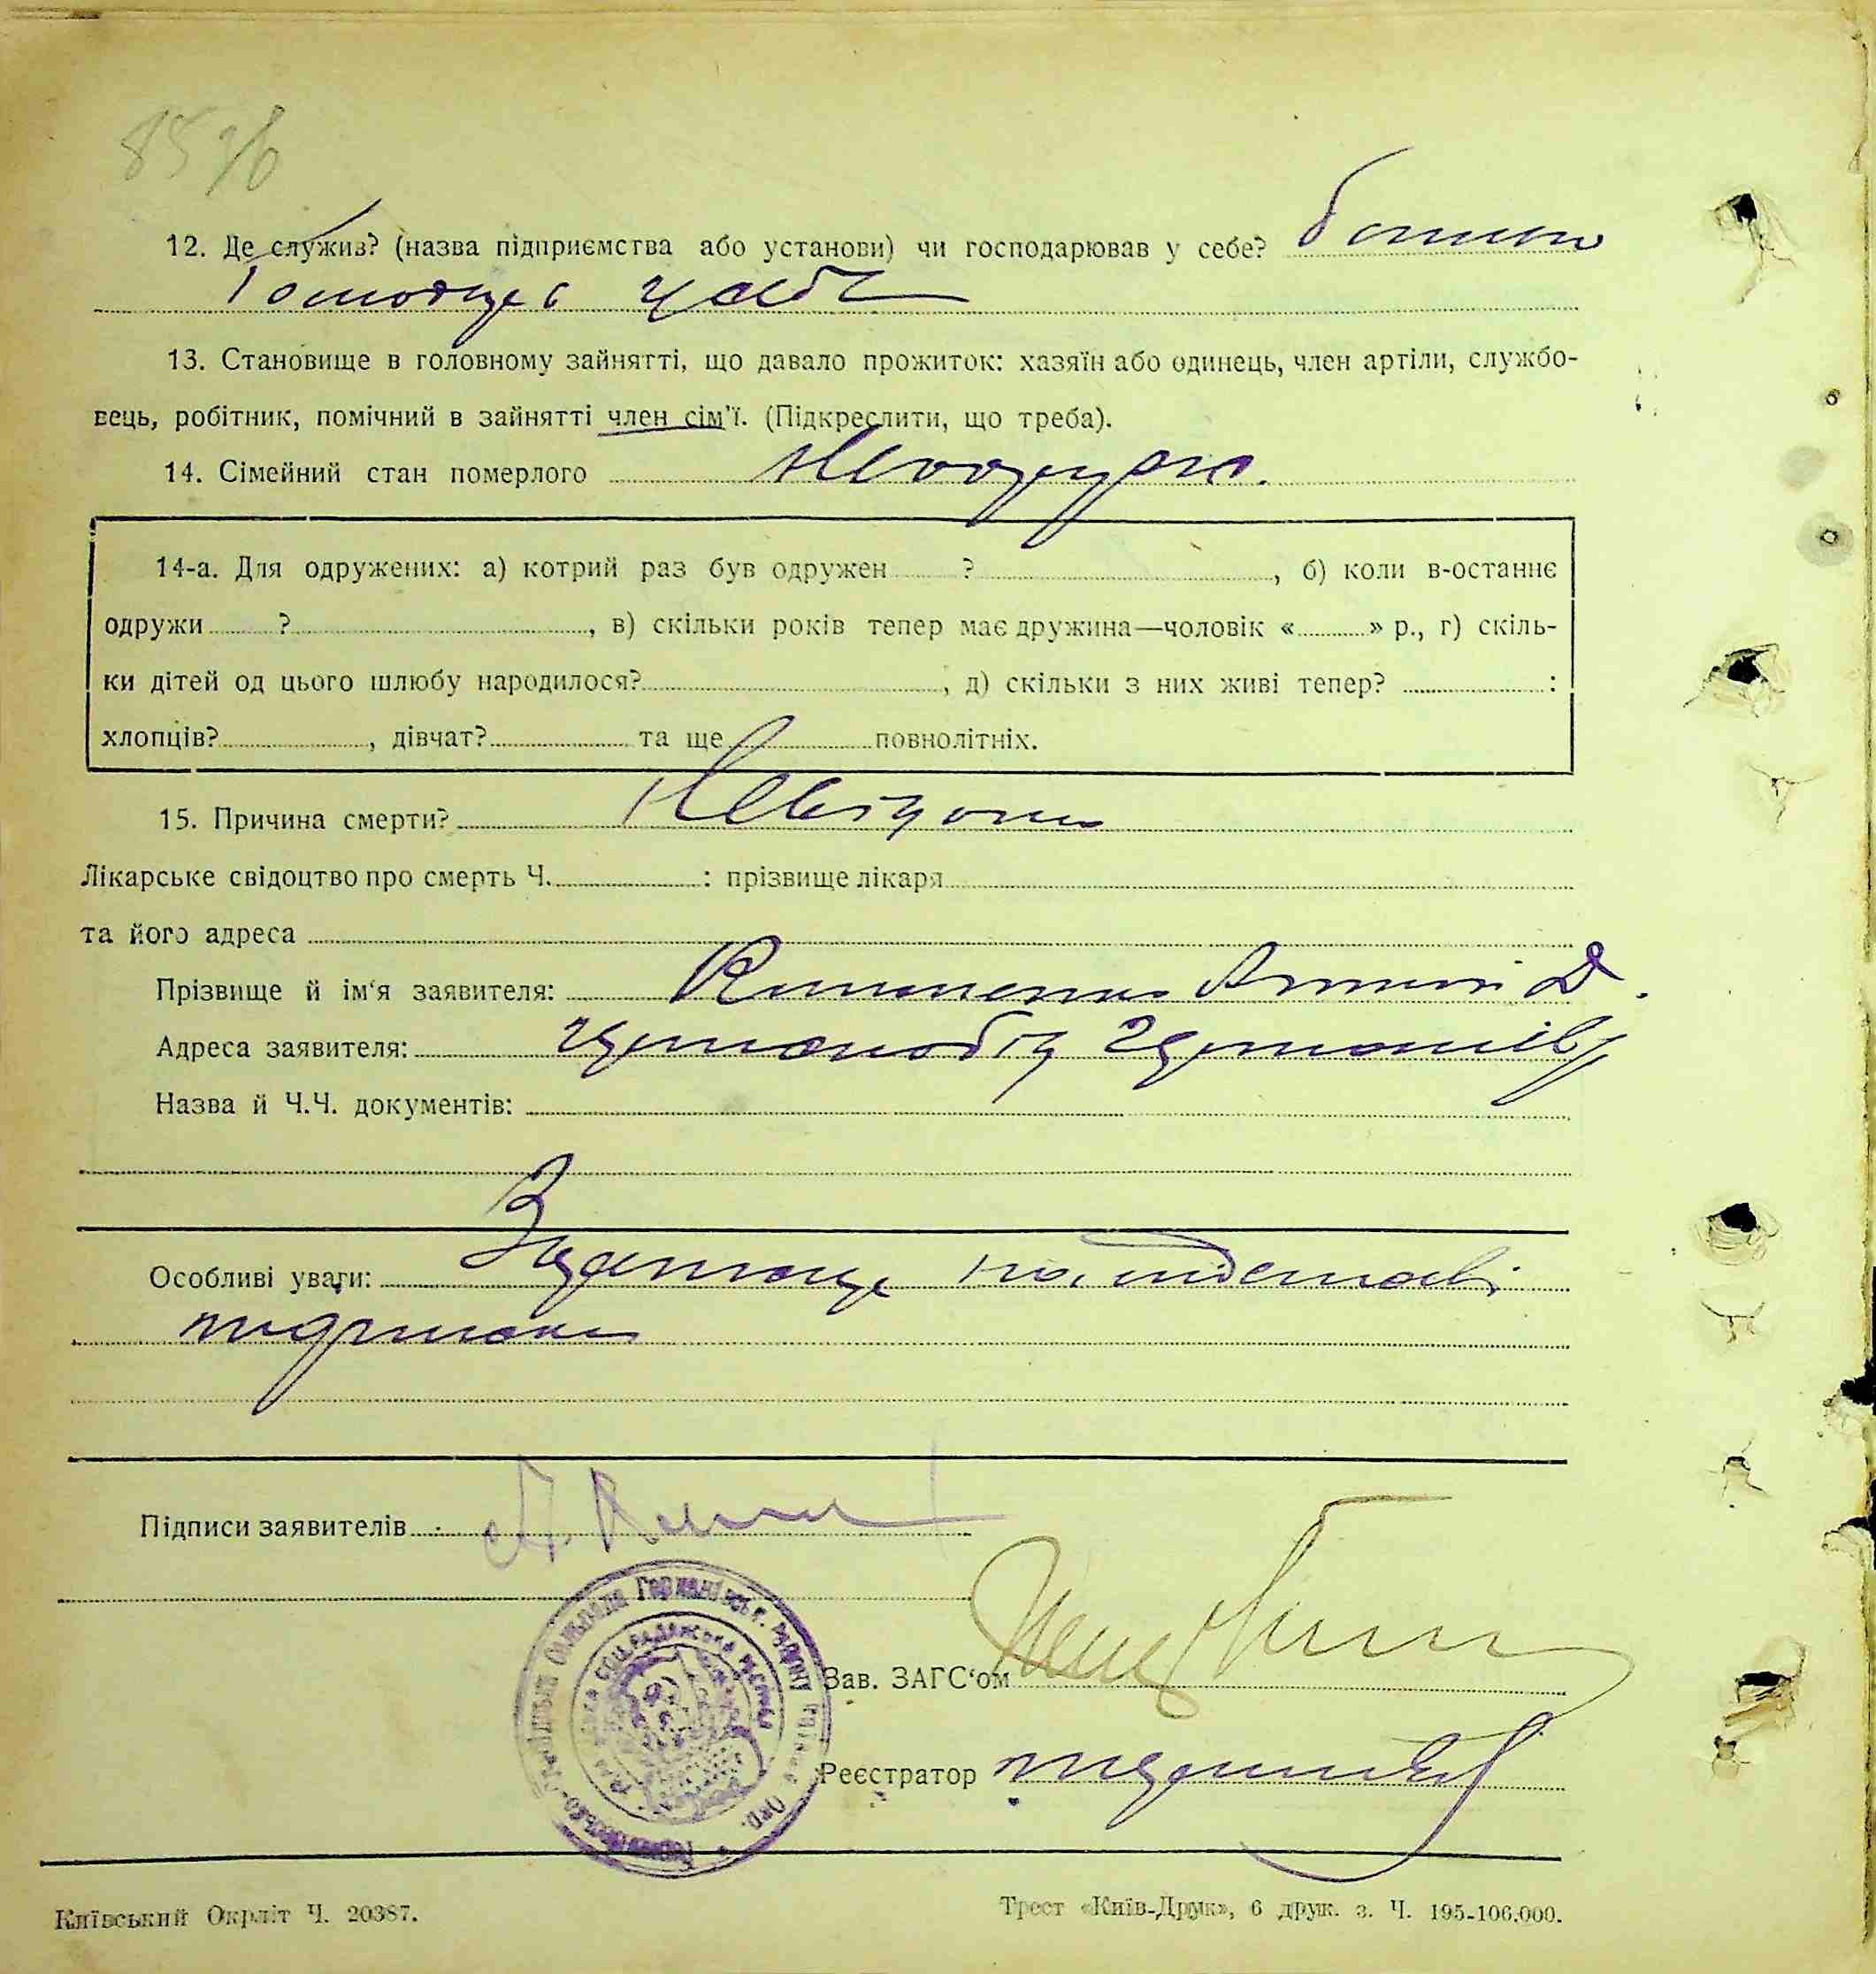 85
12. Де служив? (назва підприємства або установи) чи господарював у себе? батько
господарює у себе
13. Становище в головному зайнятті, що давало прожиток: хазяїн або одинець, член артіли, службо-
вець, робітник, помічний в зайнятті член сім'ї. (Підкреслити, що треба).
14. Сімейний стан померлого
14-а. Для одружених: а) котрий раз був одружен ?, б) коли в-останнє
одружи ?, в) скільки років тепер має дружина—чоловік « » р., г) скіль-
ки дітей од цього шлюбу народилося?, д) скільки з них живі тепер? :
хлопців?, дівчат? та ще повнолітніх.
15. Причина смерти? Невідома
Лікарське свідоцтво про смерть Ч. : прізвище лікаря
та його адреса
Прізвище й ім'я заявителя: Д.
Адреса заявителя:
Назва й Ч.Ч. документів:
Особливі уваги: на підставі
Підписи заявителів А.
Зав. ЗАГС'ом
Реєстратор
Київський Окрліт Ч. 20387.
Трест «Київ-Друк», 6 друк. з. Ч. 195-106.000.